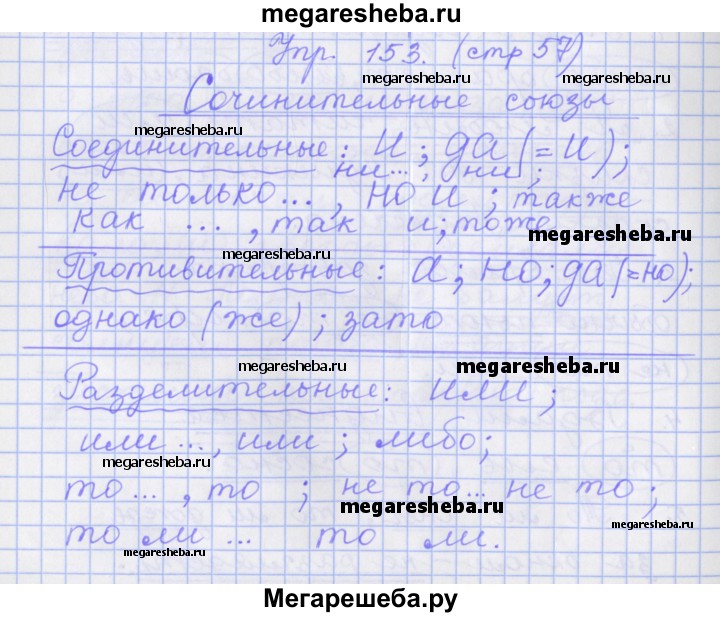 megaresheba.ru
Упр. 153. (стр 57)
megaresheba.ru
megaresheba.ru
Сочинительные союзы
megaresheba.ru
Соединительные: и; да (=и);
ни..., ни;
не только..., но и; также
как ..., так и; тоже
megaresheba.ru
megaresheba.ru
Противительные: а; но; да (=но);
однако (же); зато
megaresheba.ru
megaresheba.ru
Разделительные: или;
или ..., или; либо;
megaresheba.ru
то..., то; не то... не то;
megaresheba.ru
megaresheba.ru
то ли ... то ли.
megaresheba.ru
Мегарешеба.ру